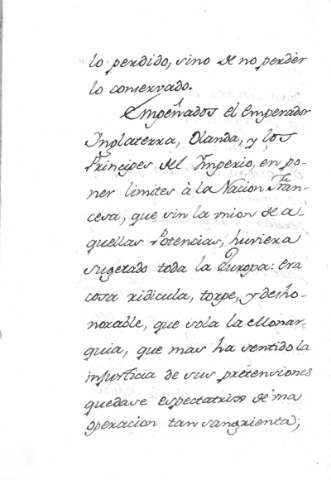 lo perdido, sino de no perdèr
lo conservado.
Empeñados el Emperador
Inglaterra, Olanda, y los
Principes del Imperio, en po-
ner limites à la Nacion Fran-
cesa, que sin la union de a-
quellas Potencias, huviera
sugetado toda la Europa: era
cosa ridicula, torpe, y desho-
norable, que sola la Monar-
quia, que mas ha sentido la
injusticia de sus pretensiones
quedase espectatriz de una
operacion tan sangrienta;